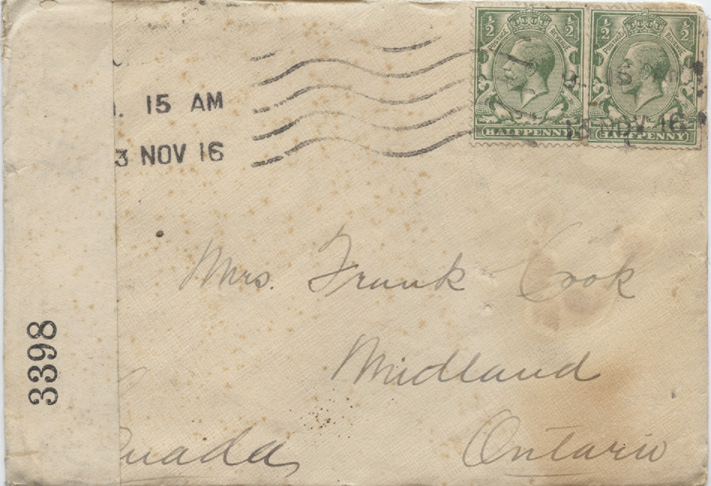 . 15 AM
3 NOV 16
½ ½ ½ ½
HALFPENNY HALFPENNY
NOV 16
3398
Mrs. Frank Cook
Midland
Ontario
nada,